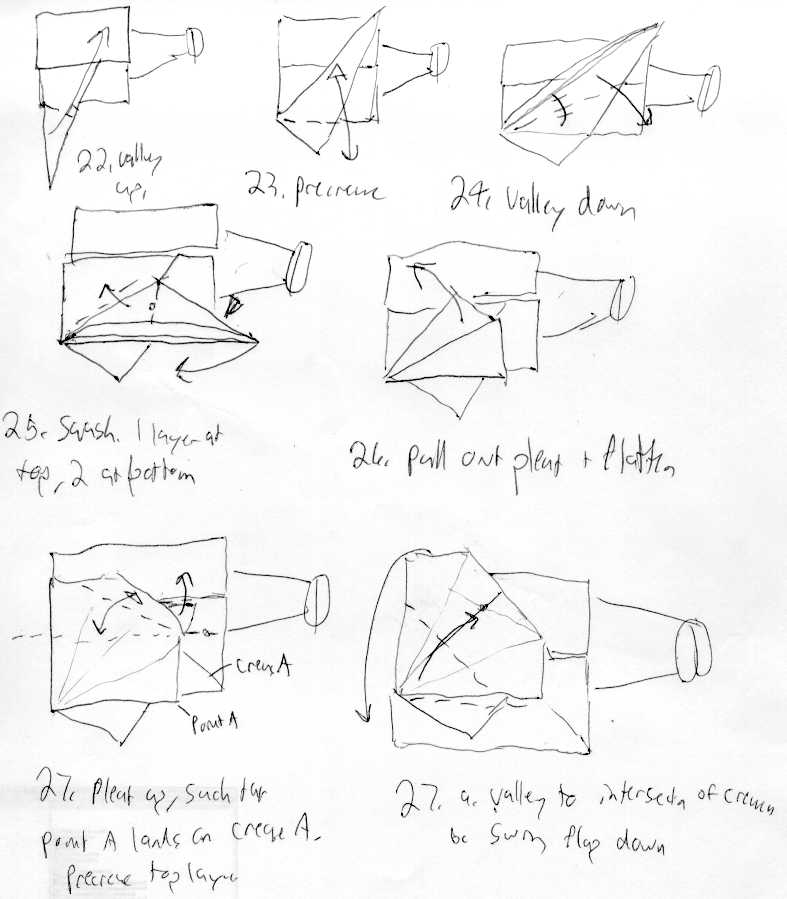 22. valley
up.
23. precrease
24. valley down
25. Squash. 1 layer at
top, 2 at bottom
26. pull out pleat + flatten
Crease A
Point A
27. Pleat up, such that
point A lands on crease A.
Precrease top layer
27. a. valley to intersectn of creases
b. Swing flap down